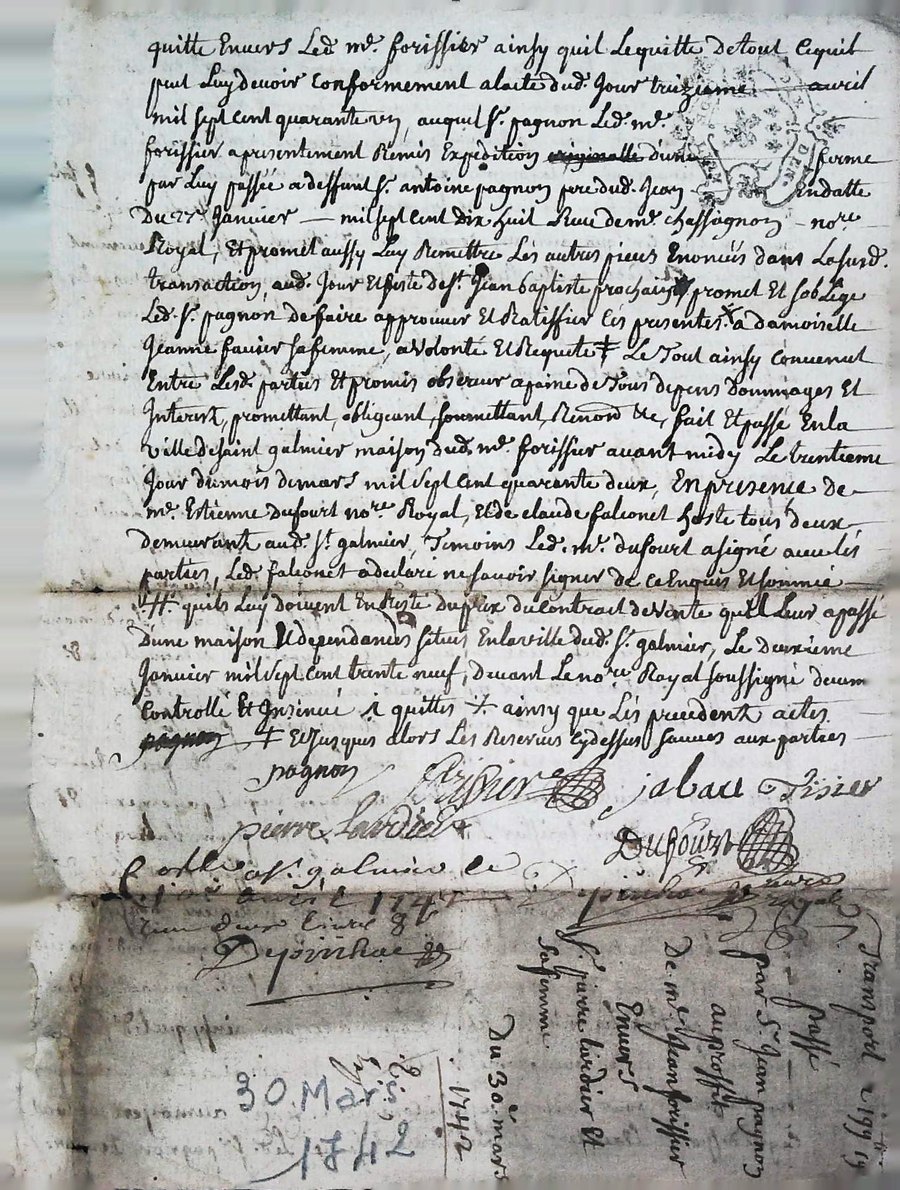 quitte Envers Led. me. forissier ainsy quil Lequitte detout Cequil
peut Luy devoir Conformement alacte dud. Jour treizieme avril
mil sept cent quarante un, auquel Sr. pagnon Led. me.
forissier apresentement Remis Expedition originalle d'une ferme
par Luy passée adeffunt Sr. antoine pagnon pere dud. Jean Endatte
Du 27e Janvier — mil sept cent Dix huit Reçue de me. chassagnon - nore
Royal, Et promet aussy Luy Remettre Les autres pieces Enoncés dans Lasusd.
transaction, aud. Jour Et feste de st. Jean baptiste prochain promet Et soblige
Led. Sr. pagnon de faire approuver Et Ratiffier Ces presentes a damoiselle
Jeanne favier safemme, avolonté Et Requete ‡ Le Tout ainsy Convenut
Entre Lesd. parties Et promis observer apaine de Tous depens Dommages Et
Interest, promettant, obligeant, soumettant, Renond &c, fait Et passé Enla
ville desaint galmier maison dud. me. forissier avant midy Le trentieme
Jour dumois demars mil sept cent quarante deux, En presence de
me. Estienne Dufourt nore Royal, Et de claude falconet hoste tous deux
demeurant aud. St. galmier, Temoins Led. me. dufourt asigné avec Les
parties, Led. falconet adeclaré ne savoir signer de ce Enquis Et sommé
# quils Luy doivent En Reste du prix du Contrat devente quil Leur apassé
Dune maison Et dependances situes Enlaville dud. St. galmier, Le Deuxieme
Janvier mil sept cent trente neuf, Devant Le nore Royal soussigné
Controllé Et Insinué quittes ainsy que Les precedent actes
pagnon ‡ Et Jusques alors Les Reserves Cydessus sauves aux parties
pagnon forissier jabact Tisier
pierre Lardier
Dufourt
Collé a St. galmier le
1er avril 1742
Depinhac
Depinhac nore royal
Transport
passé
par Sr. Jean pagnon
auproffit
De me. Jean forissier
Envers
Sr. pierre lardier Et
safemme
Du 30e mars
1742
30 Mars
1742